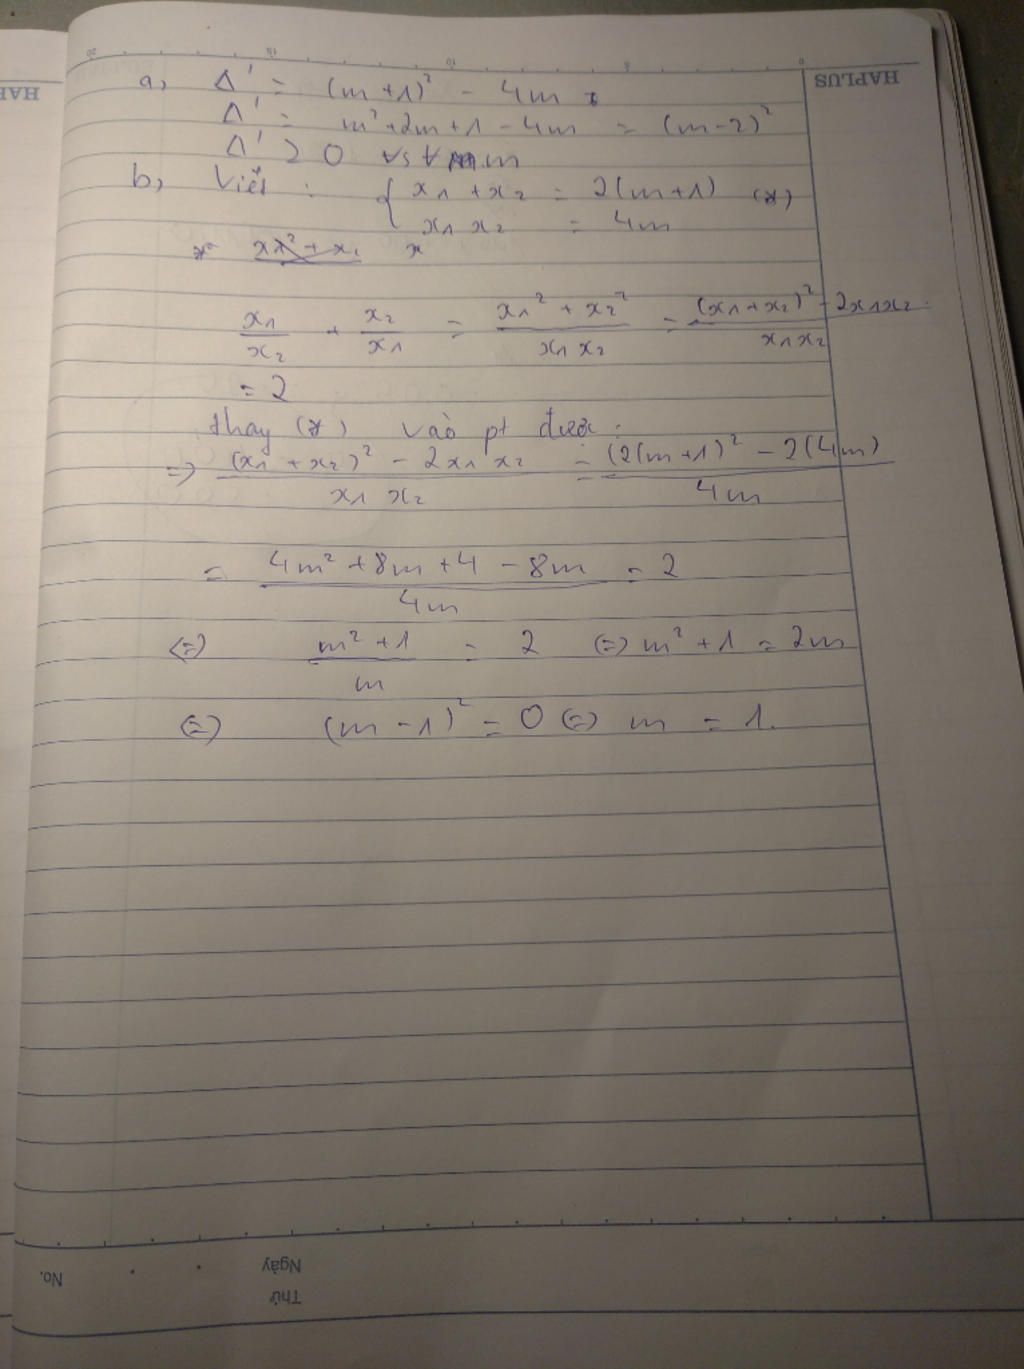 HAPLUS
a, Δ' = (m+1)² - 4m
Δ' = m²+2m+1-4m = (m-2)²
Δ' > 0 ∀m
b, Viét : { x₁+x₂ = 2(m+1) (*)
x₁x₂ = 4m
x₁/x₂ + x₂/x₁ = (x₁²+x₂²)/(x₁x₂) = ((x₁+x₂)² - 2x₁x₂)/(x₁x₂)
= 2
thay (*) vào pt được :
=> ((x₁+x₂)² - 2x₁x₂)/(x₁x₂) = ((2(m+1)² - 2(4m))/(4m)
= (4m²+8m+4-8m)/(4m) = 2
(=) (m²+1)/m = 2 (=) m²+1 = 2m
(=) (m-1)² = 0 (=) m = 1.
No.
Ngày
Thứ